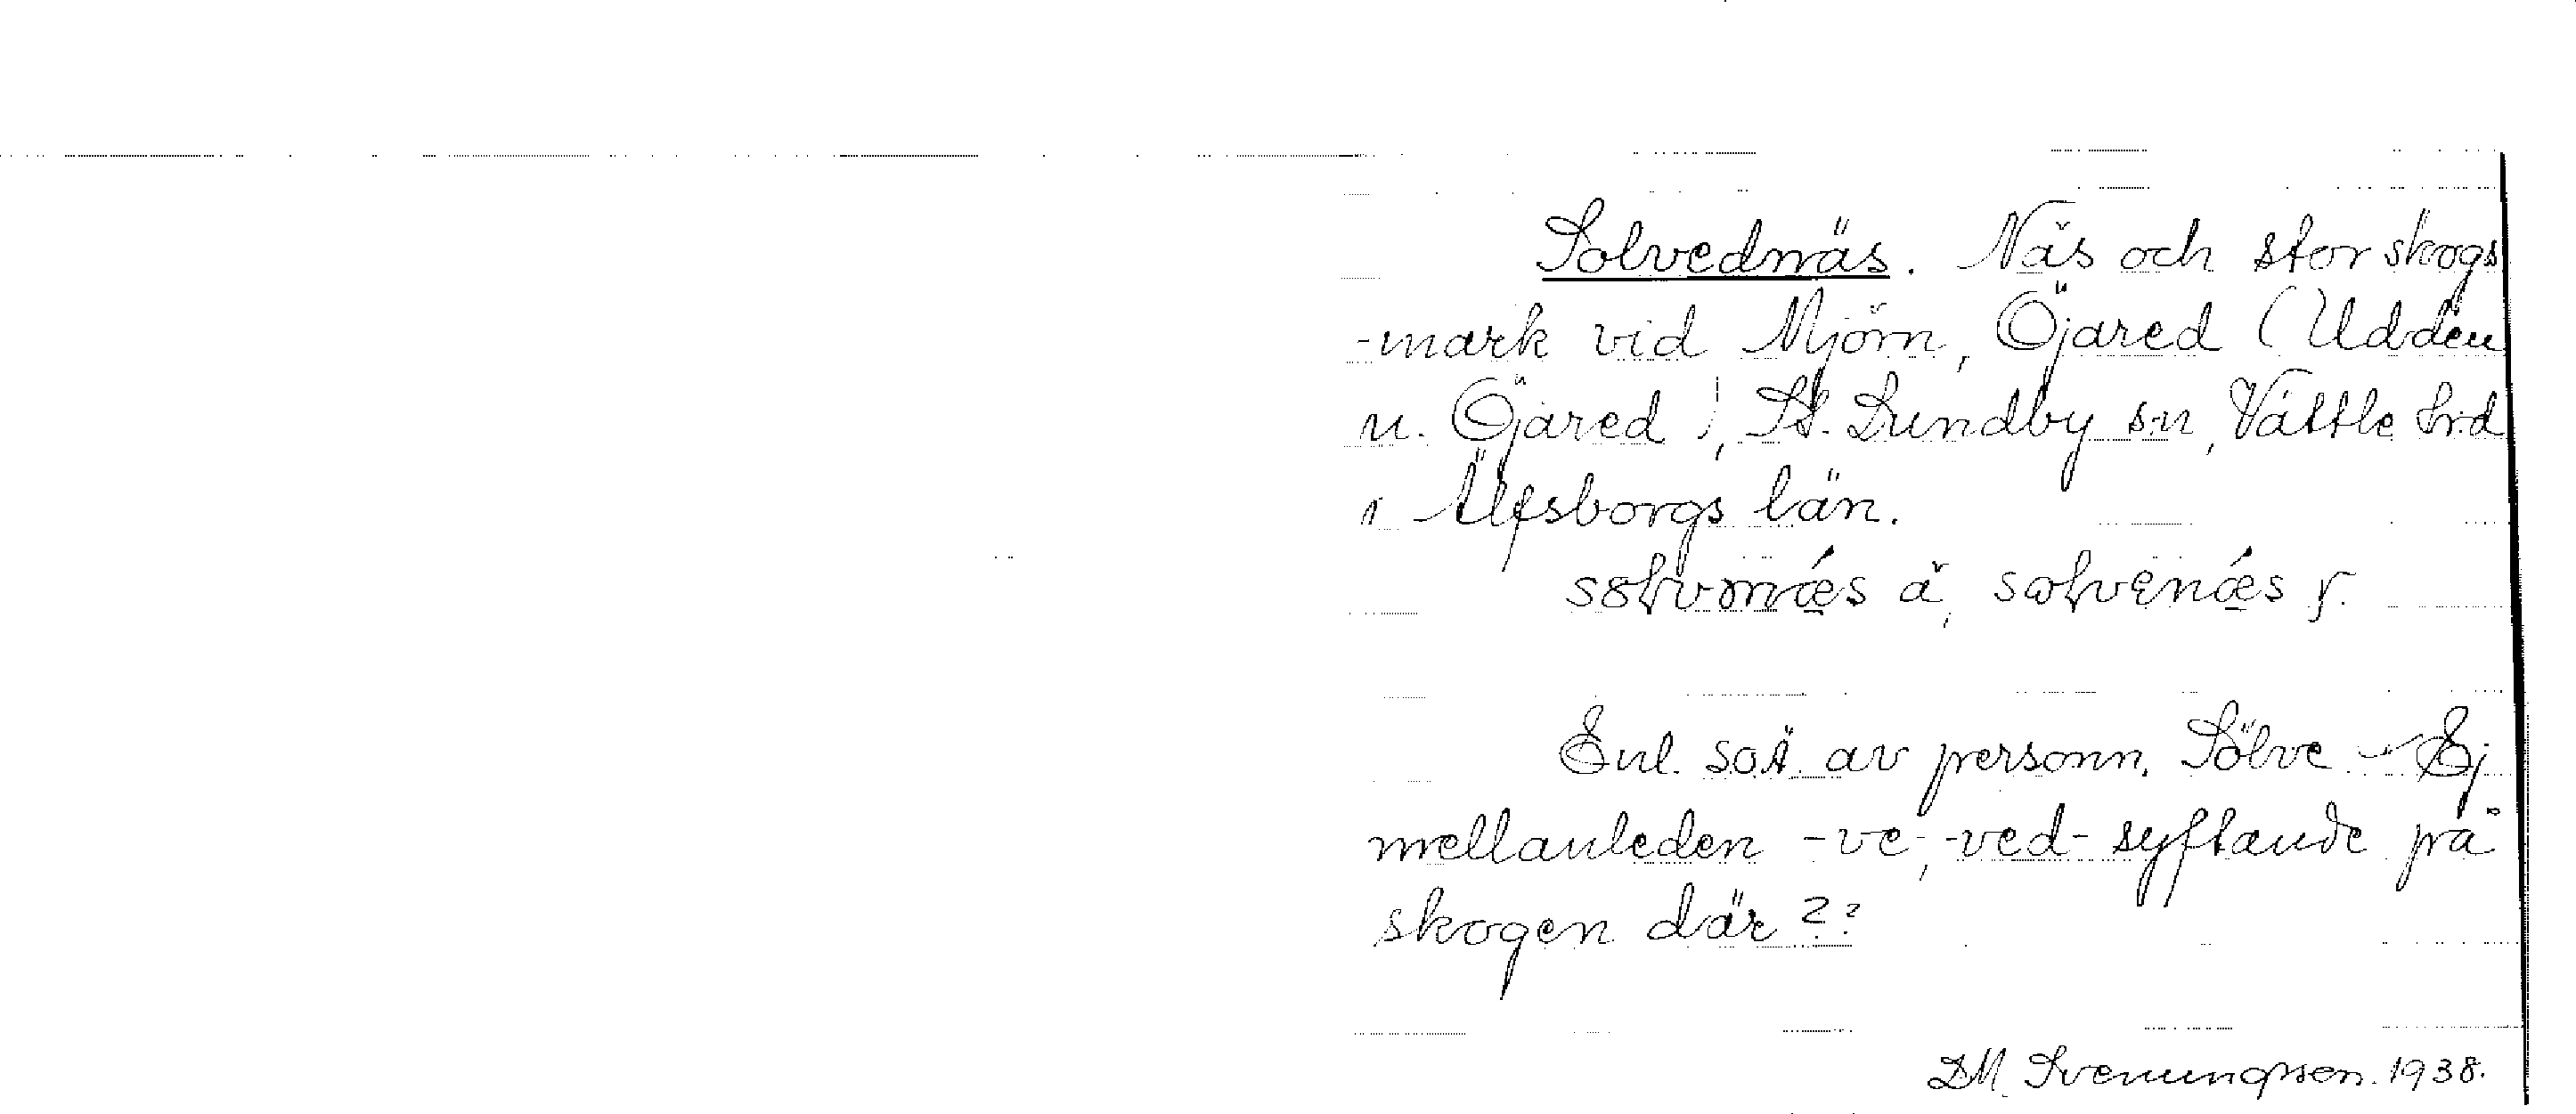 Solvednäs. Näs och stor skogs
-mark vid Mjörn, Öjared (Udden
u. Öjared), St. Lundby s:n, Vättle hrd
i Älfsborgs län.
ä,
Enl. SOÄ. av personn. Sölve. – Ej
mellanleden -ve-, -ved- syftande på
skogen där ??
D.M. Svenungsson. 1938.